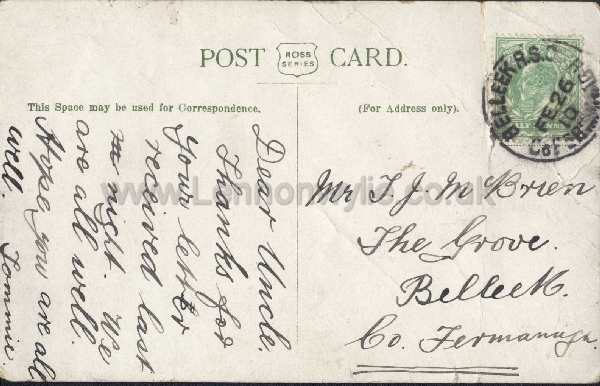 POST ROSS SERIES CARD.
This Space may be used for Correspondence.
(For Address only).
BELLEEK R.S.O.
FE 26
10
Dear Uncle.
Thanks for
your letter
received last
m night. We
are all well.
Hope you are all
well. Tommie
Mr T. J. McBrien
The Grove.
Belleek.
Co. Fermanagh.
www.LennonWylie.co.uk